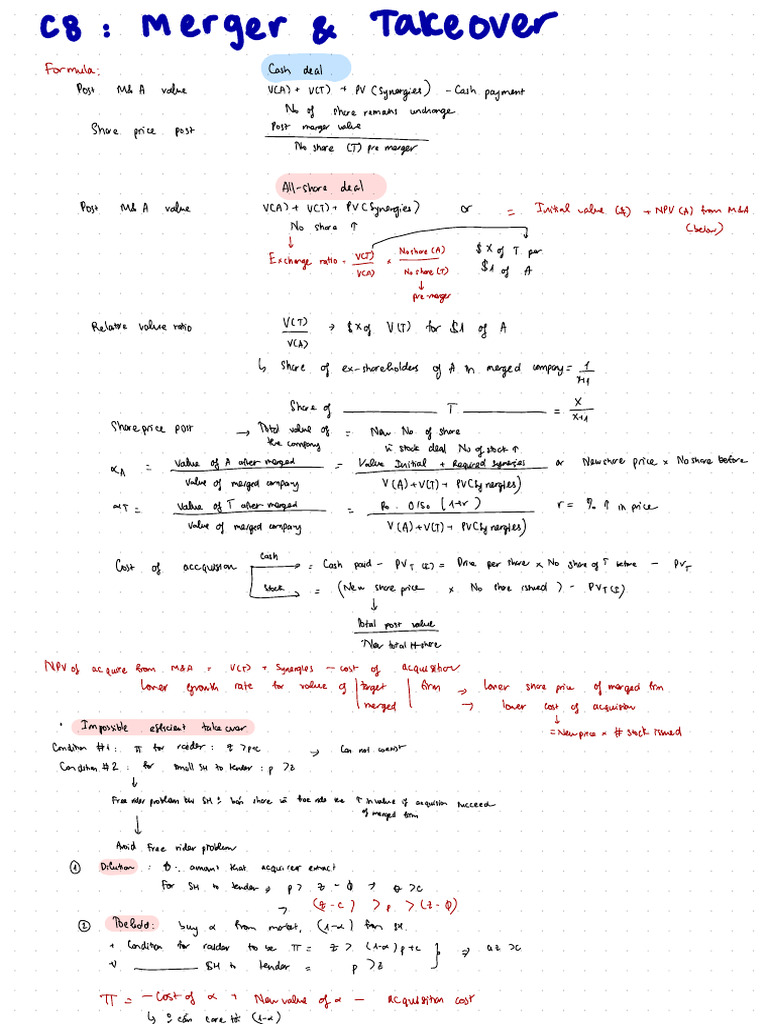 C8 : Merger & Takeover
Formula:
Cash deal
Post M&A value V(A) + V(T) + PV (Synergies) - Cash payment
No of share remains unchange
Share price post Post merger value
No share (T) pre merger
All-share deal
Post M&A value V(A) + V(T) + PV (Synergies) or = Initial value (A) + NPV (A) from M&A
No share ↑ (below)
Exchange ratio = V(T) / V(A) × No share (A) / No share (T) $ X of T per $1 of A
↓
pre-merger
Relative value ratio V(T) / V(A) → $ X of V(T) for $1 of A
↳ Share of ex-shareholders of A in merged company = 1 / x+1
Share of ______ T ______ = x / x+1
Share price post → Total value of the company = New No. of share
stock deal No of stock ↑
αA = Value of A after merged / Value of merged company = Value Initial + Required synergies / V(A) + V(T) + PV(Synergies) or New share price × No share before
αT = Value of T after merged / Value of merged company = P0 . O/S0 (1+r) / V(A) + V(T) + PV(Synergies) r = % ↑ in price
Cost of accquision
Cash → = Cash paid - PVT = Price per share × No share of T before - PVT
Stock → = (New share price × No share issued) - PVT
↓
Total post value
New total # share
NPV of acquire from M&A = V(T) + Synergies - cost of acquisition
Lower growth rate for value of | target merged | firm → Lower share price of merged firm
→ lower cost of acquision
↓
= New price × # stock issued
Impossible efficient takeover
Condition #1: π for raider : z > p+c → Can not coexist
Condition #2 : for small SH to tender : p > z
↓
Free rider problem SH share ↑ in value if acquision succeed
of merged firm
↓
Avoid Free rider problem
① Dilution : Φ : amount that acquirer extract
For SH to tender → p > z - Φ → Φ > c
→ (z - c) > p > (z - Φ)
② Toehold: buy α from market, (1-α) from SH.
+ Condition for raider to be π = z > (1-α)p + c } → αz > c
+ ______ SH to tender = p > z
π = - Cost of α + New value of α - acquisition cost
↳ (1-α)